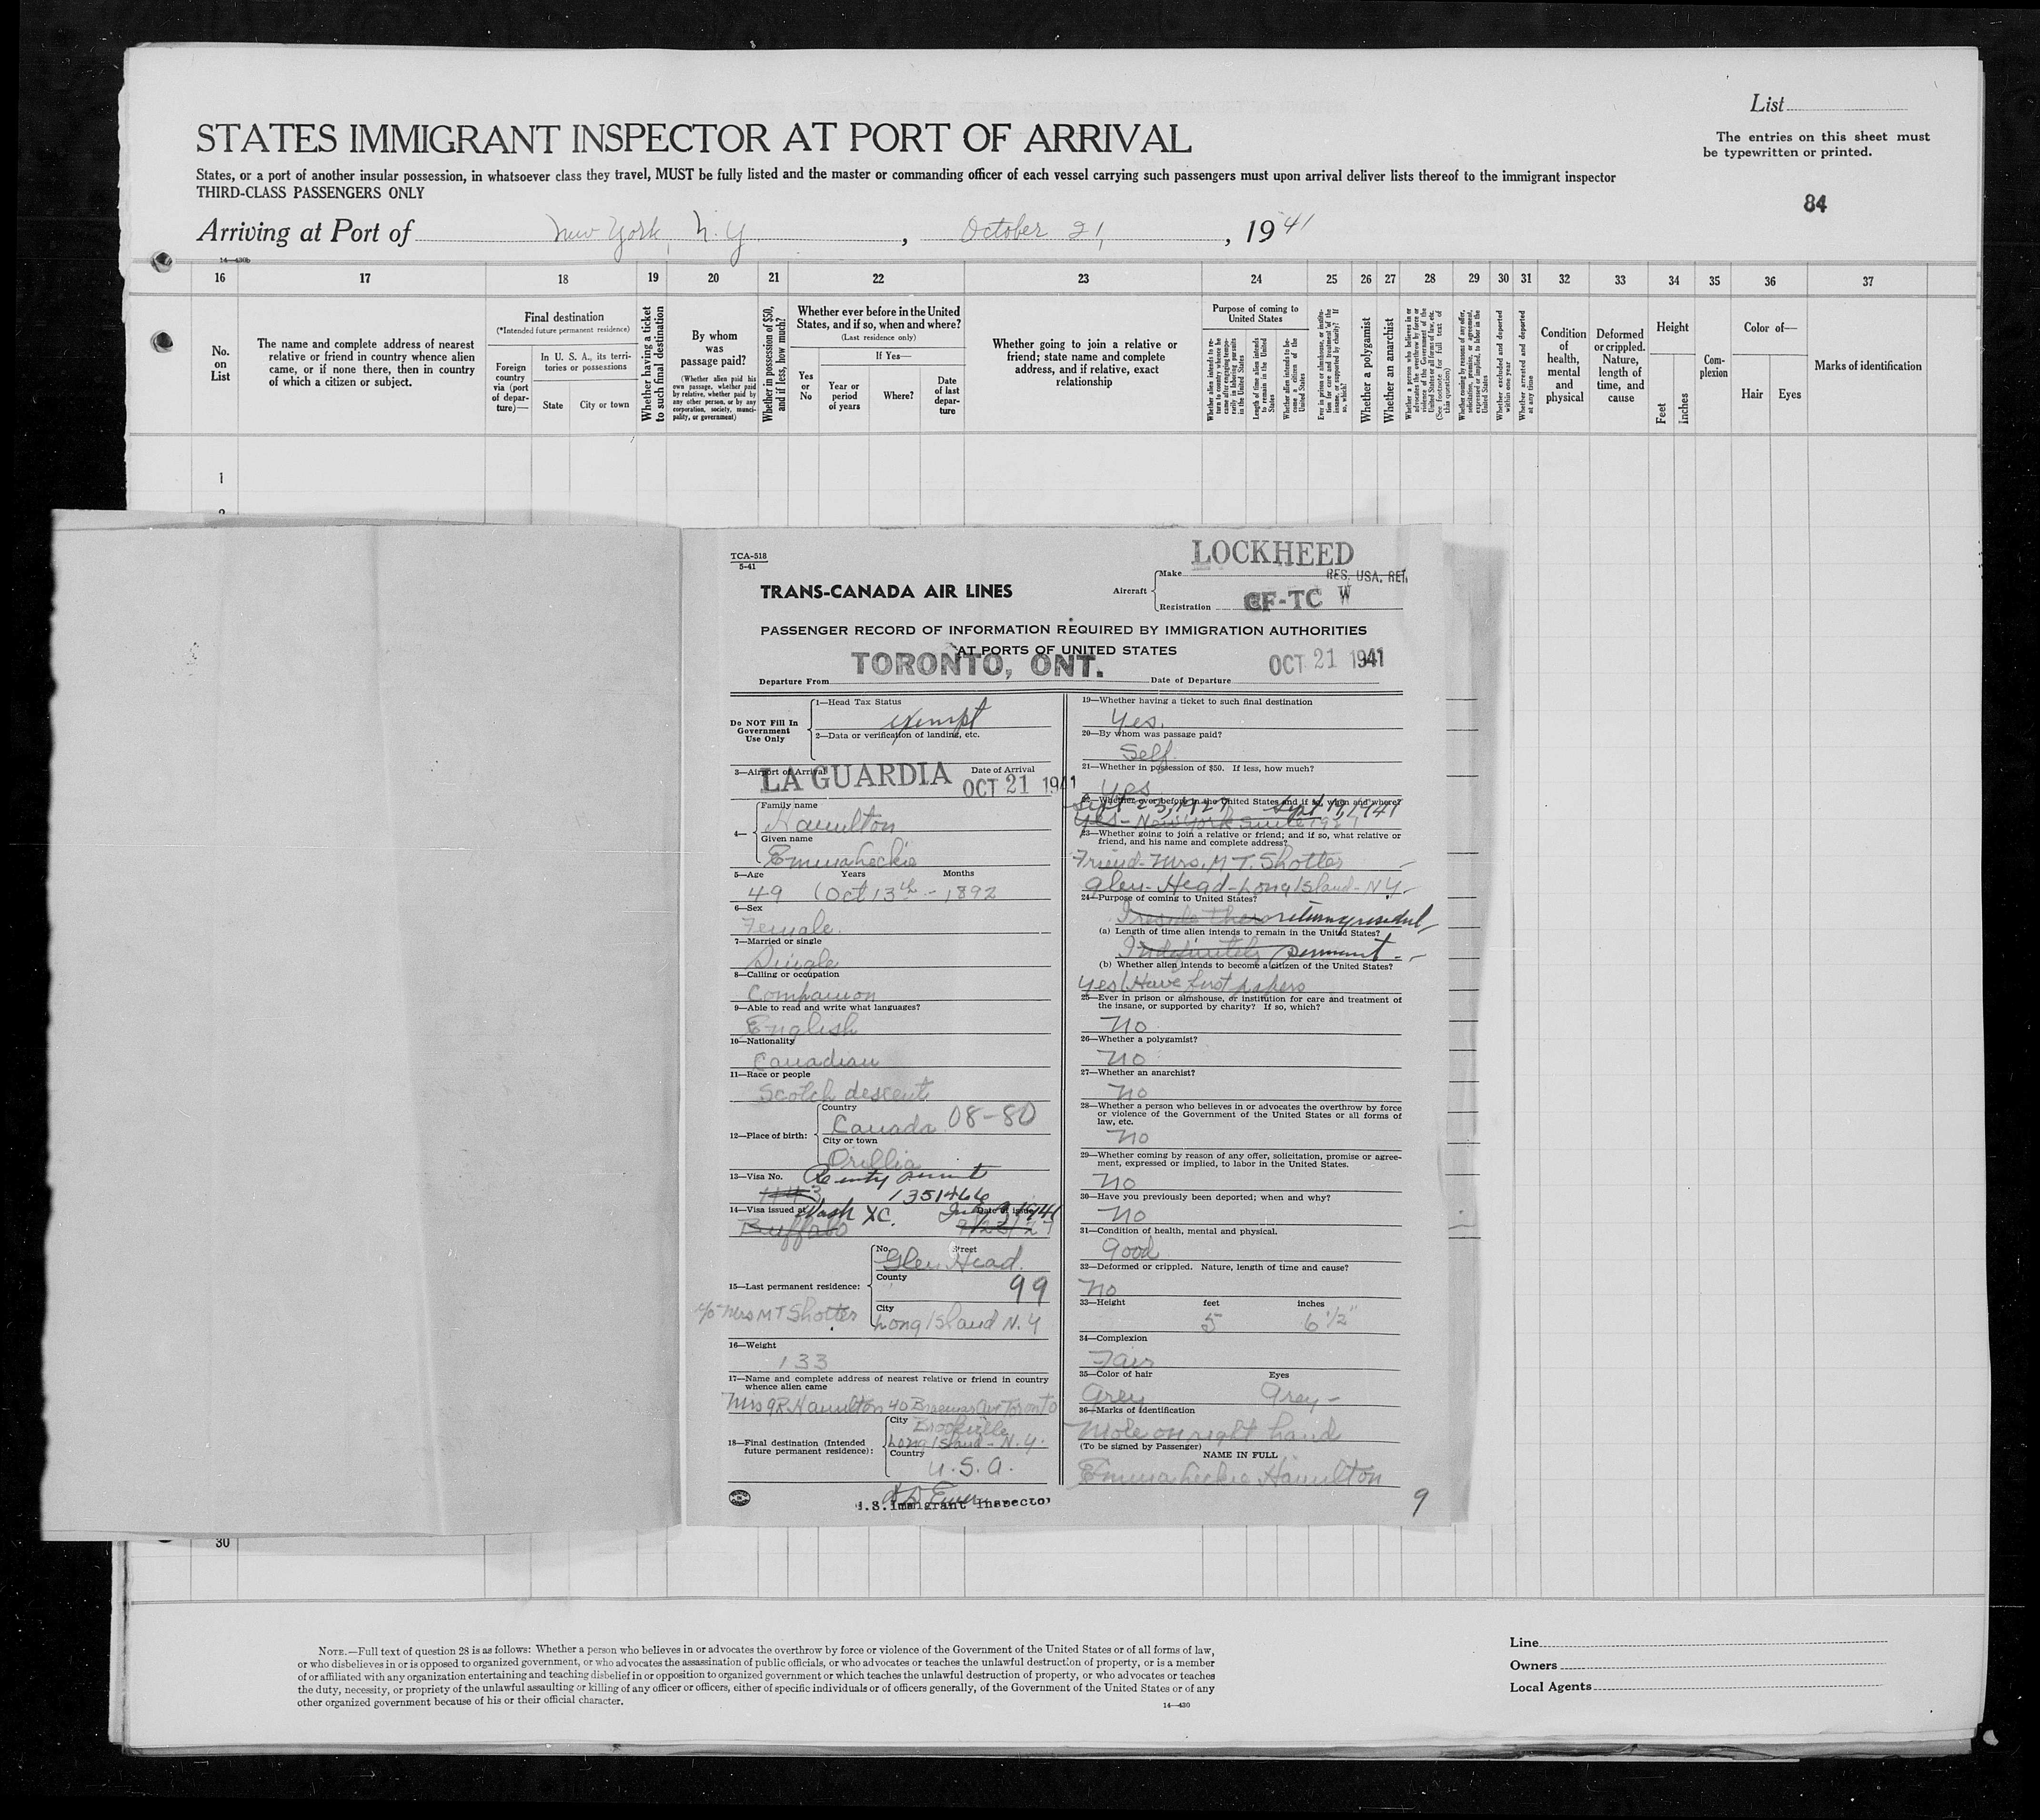 List
STATES IMMIGRANT INSPECTOR AT PORT OF ARRIVAL
The entries on this sheet must
be typewritten or printed.
States, or a port of another insular possession, in whatsoever class they travel, MUST be fully listed and the master or commanding officer of each vessel carrying such passengers must upon arrival deliver lists thereof to the immigrant inspector
THIRD-CLASS PASSENGERS ONLY
84
Arriving at Port of New York, N.Y. , October 21, , 1941
14—430b
16 17 18 19 20 21 22 23 24 25 26 27 28 29 30 31 32 33 34 35 36 37
No. on List
The name and complete address of nearest relative or friend in country whence alien came, or if none there, then in country of which a citizen or subject.
Final destination
(*Intended future permanent residence)
Foreign country via (port of departure)—
In U. S. A., its territories or possessions
State
City or town
Whether having a ticket to such final destination
By whom was passage paid?
(Whether alien paid his own passage, whether paid by relative, whether paid by any other person, or by any corporation, society, municipality, or government)
Whether in possession of $50, and if less, how much?
Whether ever before in the United States, and if so, when and where?
(Last residence only)
If Yes—
Yes or No
Year or period of years
Where?
Date of last departure
Whether going to join a relative or friend; state name and complete address, and if relative, exact relationship
Purpose of coming to United States
Whether alien intends to return to country whence he came after engaging temporarily in laboring pursuits in the United States
Length of time alien intends to remain in the United States
Whether alien intends to become a citizen of the United States
Ever in prison or almshouse, or institution for care and treatment of the insane, or supported by charity? If so, which?
Whether a polygamist
Whether an anarchist
Whether a person who believes in or advocates the overthrow by force or violence of the Government of the United States or all forms of law, etc. (See footnote for full text of this question)
Whether coming by reasons of any offer, solicitation, promise, or agreement, expressed or implied, to labor in the United States
Whether excluded and deported within one year
Whether arrested and deported at any time
Condition of health, mental and physical
Deformed or crippled. Nature, length of time, and cause
Height
Feet
Inches
Complexion
Color of—
Hair
Eyes
Marks of identification
1
2
TCA-518
5-41
LOCKHEED
Aircraft
Make
RES. USA. RET.
TRANS-CANADA AIR LINES
Registration CF-TC W
PASSENGER RECORD OF INFORMATION REQUIRED BY IMMIGRATION AUTHORITIES
AT PORTS OF UNITED STATES
Departure From TORONTO, ONT. Date of Departure OCT 21 1941
Do NOT Fill In
Government
Use Only
1—Head Tax Status
exempt
2—Data or verification of landing, etc.
3—Airport of Arrival Date of Arrival
LA GUARDIA OCT 21 1941
4—
Family name
Hamilton
Given name
Emma Leckie
5—Age Years Months
49 (Oct 13th - 1892
6—Sex
Female.
7—Married or single
Single
8—Calling or occupation
Companion
9—Able to read and write what languages?
English
10—Nationality
Canadian
11—Race or people
Scotch descent
12—Place of birth:
Country
Canada 08-80
City or town
Orillia
13—Visa No. Reentry permit
1351466
14—Visa issued at Date of issue
Wash 1941
Buffalo 9/23/27
15—Last permanent residence:
No. Street
Glen Head.
County
99
City
c/o Mrs M T Shotter
Long Island N.Y
16—Weight
133
17—Name and complete address of nearest relative or friend in country
whence alien came
Mrs Hamilton 40 Braemar Ave Toronto
18—Final destination (Intended
future permanent residence):
City
Brookville
Long Island - N.Y.
Country
U.S.A.
U.S. Immigrant Inspector
19—Whether having a ticket to such final destination
Yes.
20—By whom was passage paid?
Self.
21—Whether in possession of $50. If less, how much?
Yes
22—Whether ever before in the United States and if so, when and where?
Sept 23, 1927 Sept 1941
Yes - New York since 1927
23—Whether going to join a relative or friend; and if so, what relative or
friend, and his name and complete address?
Friend - Mrs. M T. Shotter
Glen - Head - Long Island - N.Y.
24—Purpose of coming to United States?
I reside there
(a) Length of time alien intends to remain in the United States?
Indefinitely permanent
(b) Whether alien intends to become a citizen of the United States?
Yes (Have first papers
25—Ever in prison or almshouse, or institution for care and treatment of
the insane, or supported by charity? If so, which?
No
26—Whether a polygamist?
No
27—Whether an anarchist?
No
28—Whether a person who believes in or advocates the overthrow by force
or violence of the Government of the United States or all forms of
law, etc.
No
29—Whether coming by reason of any offer, solicitation, promise or agree-
ment, expressed or implied, to labor in the United States.
No
30—Have you previously been deported; when and why?
No
31—Condition of health, mental and physical.
Good
32—Deformed or crippled. Nature, length of time and cause?
No
33—Height feet inches
5 6 1/2"
34—Complexion
Fair
35—Color of hair Eyes
Grey Grey -
36—Marks of identification
Mole on right hand
(To be signed by Passenger)
NAME IN FULL
Emma Leckie Hamilton
9
30
NOTE.—Full text of question 28 is as follows: Whether a person who believes in or advocates the overthrow by force or violence of the Government of the United States or of all forms of law,
or who disbelieves in or is opposed to organized government, or who advocates the assassination of public officials, or who advocates or teaches the unlawful destruction of property, or is a member
of or affiliated with any organization entertaining and teaching disbelief in or opposition to organized government or which teaches the unlawful destruction of property, or who advocates or teaches
the duty, necessity, or propriety of the unlawful assaulting or killing of any officer or officers, either of specific individuals or of officers generally, of the Government of the United States or of any
other organized government because of his or their official character.
14—430
Line
Owners
Local Agents